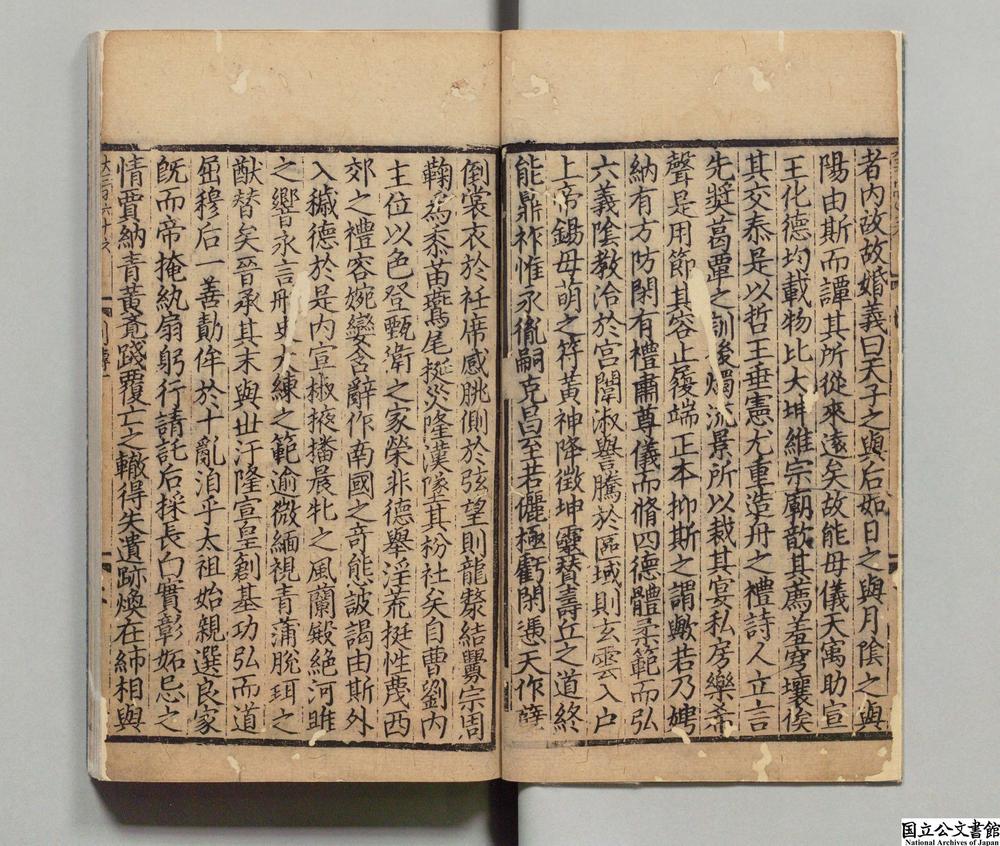 者內政故婚義曰天子之與后如日之與月陰之與
陽由斯而譚其所從來遠矣故能母儀天寓助宣
王化德均載物比大坤維宗廟歆其薦羞穹壤俟
其交泰是以哲王垂憲尤重造舟之禮詩人立言
先奬葛覃之訓後燭流景所以裁其宴私房樂希
聲是用節其容止履端正本抑斯之謂歟若乃娉
納有方防閑有禮肅尊儀而脩四德體柔範而弘
六義陰教洽於宮闈淑譽騰於區域則玄雲入户
上帝錫母萌之符黄神降徵坤靈賛壽丘之道終
能鼎祚惟永胤嗣克昌至若儷極虧閑憑天作孽
倒裳衣於衽席感朓側於弦望則龍漦結釁宗周
鞠為黍苗鷰尾挻災隆漢墜其枌社矣自曹劉内
主位以色登甄衛之家榮非德舉淫荒挺性蔑西
郊之禮容婉孌含辭作南國之奇態詖謁由斯外
入穢德於是内宣椒掖播晨牝之風蘭殿絶河雎
之響永言彤史大練之範逾微緬視青蒲脱珥之
猷替矣晉承其末與世汙隆宣皇創基功弘而道
屈穆后一善勣侔於十亂洎乎太祖始親選良家
既而帝掩紈扇躬行請託后採長白實彰妬忌之
情賈納青黃竟踐覆亡之轍得失遺跡煥在綈緗與
列傳一
国立公文書館
National Archives of Japan